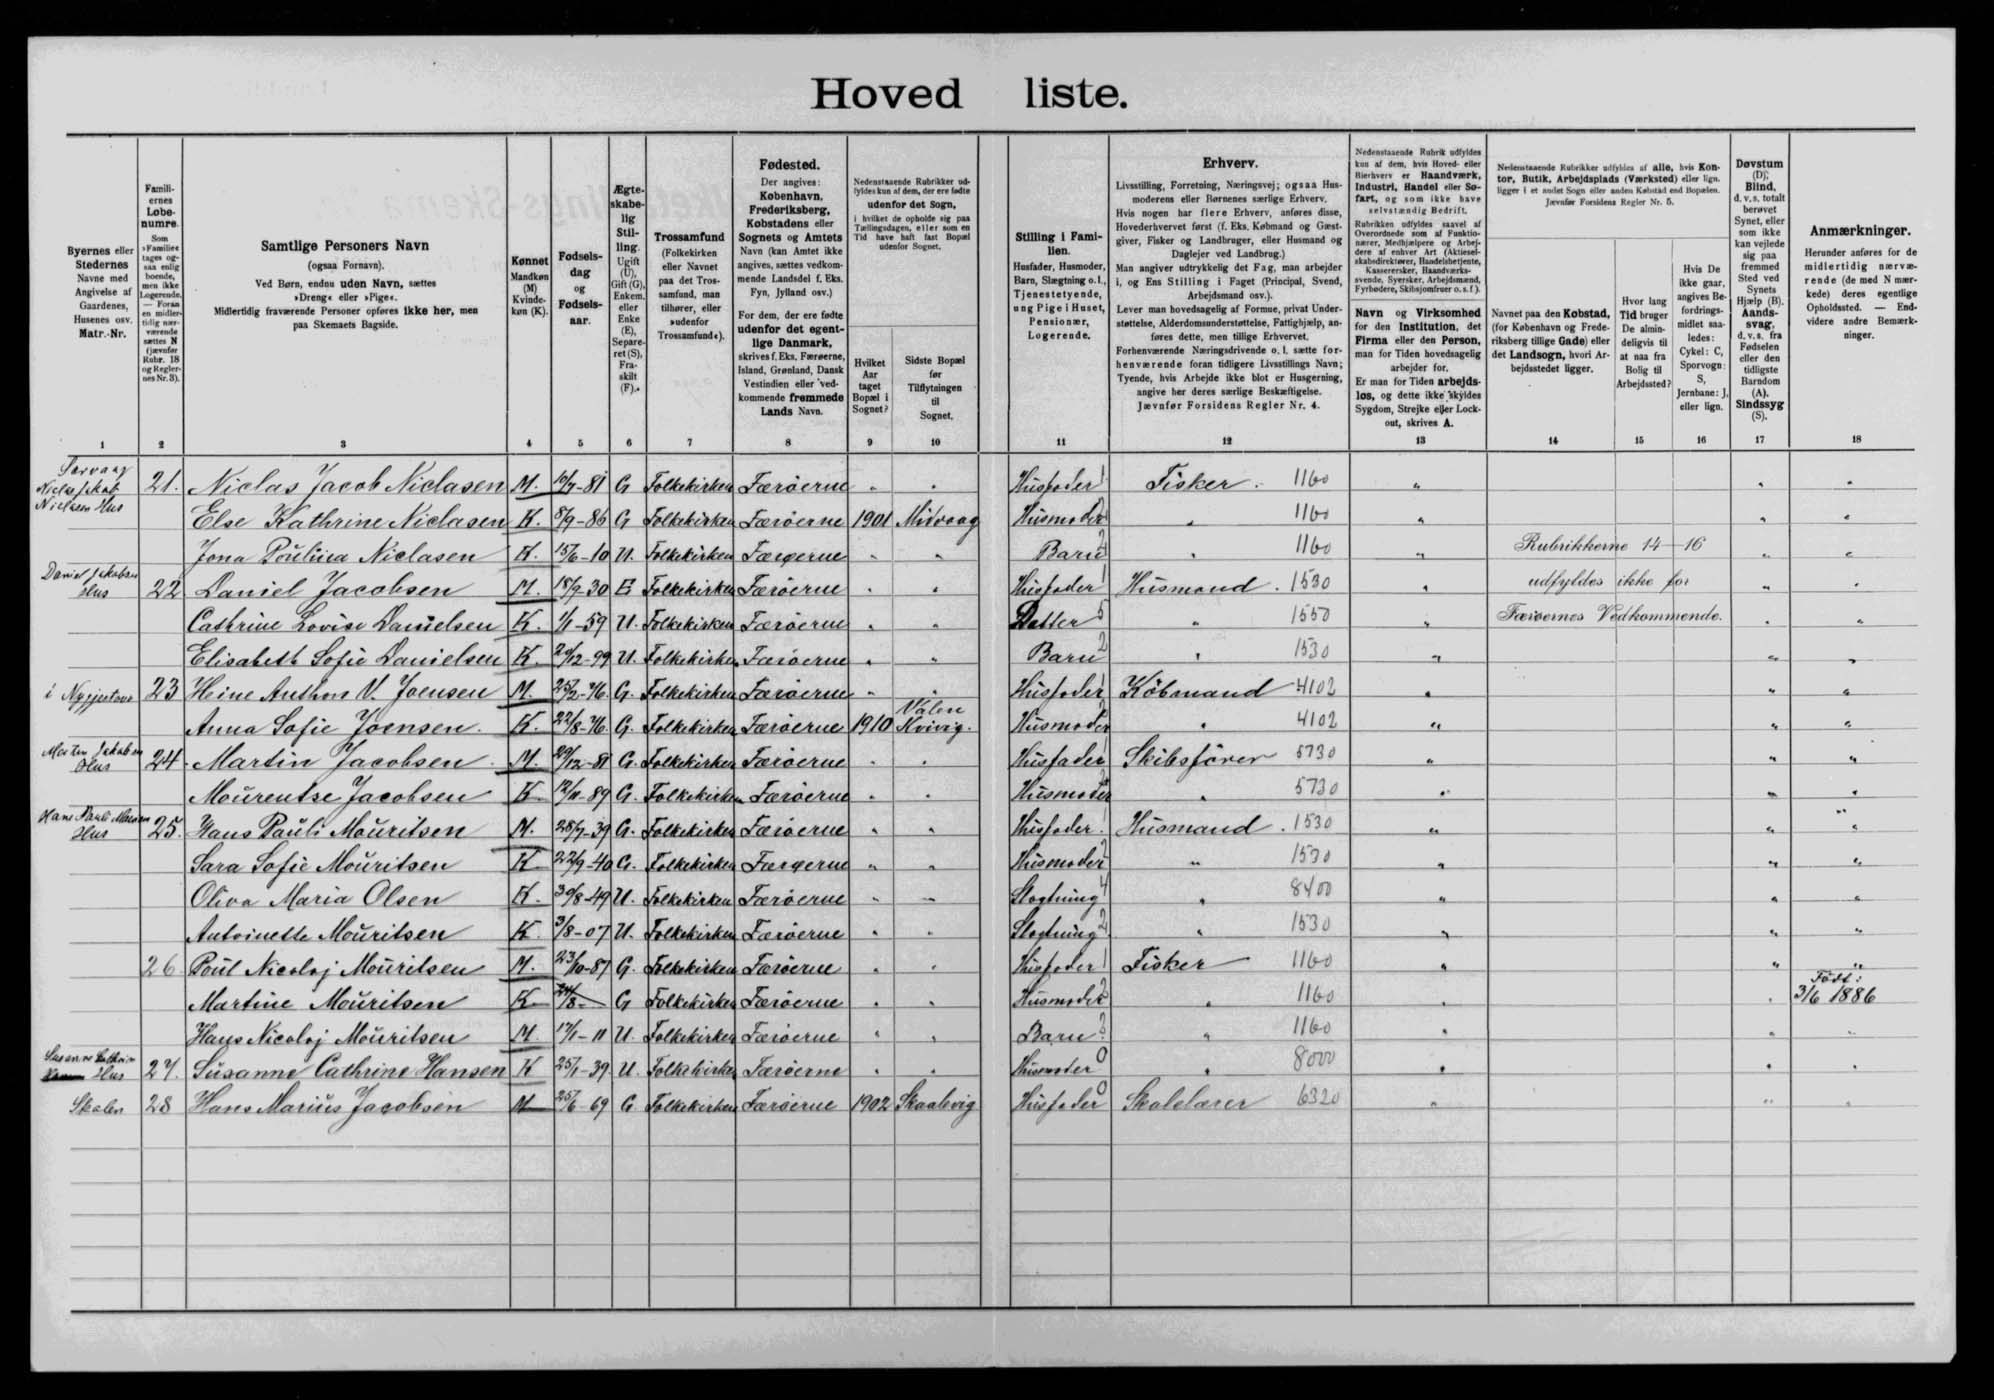 Hoved liste.
Byernes eller
Stedernes
Navne med
Angivelse af
Gaardenes,
Husenes osv.
Matr.-Nr.
1
Famili-
ernes
Løbe-
numre.
Som
»Familie«
tages og-
saa enlig
boende,
men ikke
Logerende.
— Foran
en midler-
tidig nær-
værende
sættes N
(jævnfør
Rubr. 18
og Regler-
nes Nr. 3).
2
Samtlige Personers Navn
(ogsaa Fornavn).
Ved Børn, endnu uden Navn, sættes
»Dreng« eller »Pige«.
Midlertidig fraværende Personer opføres ikke her, men
paa Skemaets Bagside.
3
Kønnet
Mandkøn
(M)
Kvinde-
køn (K).
4
Fødsels-
dag
og
Fødsels-
aar.
5
Ægte-
skabe-
lig
Stil-
ling.
Ugift
(U),
Gift (G),
Enkem.
eller
Enke
(E),
Separe-
ret (S),
Fra-
skilt
(F).
6
Trossamfund
(Folkekirken
eller Navnet
paa det Tros-
samfund, man
tilhører, eller
»udenfor
Trossamfund«).
7
Fødested.
Der angives:
København,
Frederiksberg,
Købstadens eller
Sognets og Amtets
Navn (kan Amtet ikke
angives, sættes vedkom-
mende Landsdel f. Eks.
Fyn, Jylland osv.)
For dem, der ere fødte
udenfor det egent-
lige Danmark,
skrives f. Eks. Færøerne,
Island, Grønland, Dansk
Vestindien eller ved-
kommende fremmede
Lands Navn.
8
Nedenstaaende Rubrikker ud-
fyldes kun af dem, der ere fødte
udenfor det Sogn,
i hvilket de opholde sig paa
Tællingsdagen, eller som en
Tid have haft fast Bopæl
udenfor Sognet.
Hvilket
Aar
taget
Bopæl i
Sognet?
9
Sidste Bopæl
før
Tilflytningen
til
Sognet.
10
Stilling i Fami-
lien.
Husfader, Husmoder,
Barn, Slægtning o. l.,
Tjenestetyende,
ung Pige i Huset,
Pensionær,
Logerende.
11
Erhverv.
Livsstilling, Forretning, Næringsvej; ogsaa Hus-
moderens eller Børnenes særlige Erhverv.
Hvis nogen har flere Erhverv, anføres disse,
Hovederhvervet først (f. Eks. Købmand og Gæst-
giver, Fisker og Landbruger, eller Husmand og
Daglejer ved Landbrug.)
Man angiver udtrykkelig det Fag, man arbejder
i, og Ens Stilling i Faget (Principal, Svend,
Arbejdsmand osv.).
Lever man hovedsagelig af Formue, privat Under-
støttelse, Alderdomsunderstøttelse, Fattighjælp, an-
føres dette, men tillige Erhvervet.
Forhenværende Næringsdrivende o. l. sætte for-
henværende foran tidligere Livsstillings Navn;
Tyende, hvis Arbejde ikke blot er Husgerning,
angive her deres særlige Beskæftigelse.
Jævnfør Forsidens Regler Nr. 4.
12
Nedenstaaende Rubrik udfyldes
kun af dem, hvis Hoved- eller
Bierhverv er Haandværk,
Industri, Handel eller Sø-
fart, og som ikke have
selvstændig Bedrift.
Rubrikken udfyldes saavel af
Overordnede som af Funktio-
nærer, Medhjælpere og Arbej-
dere af enhver Art (Aktiesel-
skabsdirektører, Handelsbetjente,
Kasserersker, Haandværks-
svende, Syersker, Arbejdsmænd,
Fyrbødere, Skibsjomfruer o. s. f.).
Navn og Virksomhed
for den Institution, det
Firma eller den Person,
man for Tiden hovedsagelig
arbejder for.
Er man for Tiden arbejds-
løs, og dette ikke skyldes
Sygdom, Strejke eller Lock-
out, skrives A.
13
Nedenstaaende Rubrikker udfyldes af alle, hvis Kon-
tor, Butik, Arbejdsplads (Værksted) eller lign.
ligger i et andet Sogn eller anden Købstad end Bopælen.
Jævnfør Forsidens Regler Nr. 5.
Navnet paa den Købstad,
(for København og Frede-
riksberg tillige Gade) eller
det Landsogn, hvori Ar-
bejdsstedet ligger.
14
Hvor lang
Tid bruger
De almin-
deligvis til
at naa fra
Bolig til
Arbejdssted?
15
Hvis De
ikke gaar,
angives Be-
fordrings-
midlet saa-
ledes:
Cykel: C,
Sporvogn:
S,
Jernbane: J,
eller lign.
16
Døvstum
(D),
Blind,
d. v. s. totalt
berøvet
Synet, eller
som ikke
kan vejlede
sig paa
fremmed
Sted ved
Synets
Hjælp (B).
Aands-
svag,
d. v. s. fra
Fødselen
eller den
tidligste
Barndom
(A).
Sindssyg
(S).
17
Anmærkninger.
Herunder anføres for de
midlertidig nærvæ-
rende (de med N mær-
kede) deres egentlige
Opholdssted. — End-
videre andre Bemærk-
ninger.
18
Sørvaag
Niclas Jakob Niclasen Hus 21. Niclas Jacob Niclasen M. 10/7-81 G Folkekirken Færøerne " " Husfader 1 Fisker. 1160 " " "
Else Kathrine Niclasen K. 8/9-86 G Folkekirken Færøerne 1901 Midvaag Husmoder 2 " 1160 " " "
Jona Poulina Niclasen K. 15/6-10 U. Folkekirken Færøerne " " Barn 2 " 1160 " Rubrikkerne 14-16 " "
Daniel Jakobsen Hus 22 Daniel Jacobsen M. 18/9-30 E Folkekirken Færøerne " " Husfader 1 Husmand. 1530 " udfyldes ikke for " "
Cathrine Lovise Danielsen K. 1/1-59 U. Folkekirken Færøerne " " Datter 5 " 1550 " Færøernes Vedkommende. " "
Elisabeth Sofie Danielsen K. 20/12-99 U. Folkekirken Færøerne " " Barn 2 " 1530 " " "
i 23 Heine Anthon V. Joensen M. 25/2-76 G. Folkekirken Færøerne " " Husfader 1 Købmand 4102 " " "
Anna Sofie Joensen. K. 22/8-76 G. Folkekirken Færøerne 1910 Valen Kvivig. Husmoder 2 " 4102 " " "
Morten Jakobsen Hus 24. Martin Jacobsen. M. 29/12-81 G. Folkekirken Færøerne " " Husfader 1 Skibsfører 5730 " " "
Mourentse Jacobsen K 12/11-89 G. Folkekirken Færøerne " " Husmoder 2 " 5730 " " "
Hans Pauli Hus 25. Hans Pauli Mouritsen M. 28/7-39 G. Folkekirken Færøerne " " Husfader 1 Husmand. 1530 " " "
Sara Sofie Mouritsen K 22/9-40 G. Folkekirken Færøerne " " Husmoder 2 " 1530 " " "
Oliva Maria Olsen K. 30/8-49 U. Folkekirken Færøerne " " Slægtning 4 " 8400 " " "
Antoinette Mouritsen K 3/8-07 U. Folkekirken Færøerne " " Slægtning 2 " 1530 " " "
26 Poul Nicolaj Mouritsen M. 23/10-87 G. Folkekirken Færøerne " " Husfader 1 Fisker 1160 " " "
Martine Mouritsen K G Folkekirken Færøerne " " Husmoder 2 " 1160 " " Født: 3/6 1886
Hans Nicolaj Mouritsen M. 17/1-11 U. Folkekirken Færøerne " " Barn 2 " 1160 " " "
Susanne Cathrine Hus 27. Susanne Cathrine Hansen K 25/1-39 U. Folkekirken Færøerne " " Husmoder 0 " 8000 " " "
Skolen 28 Hans Marius Jacobsen M 25/6-69 G Folkekirken Færøerne 1902 Skaalevig Husfader 0 Skolelærer 6320 " " "